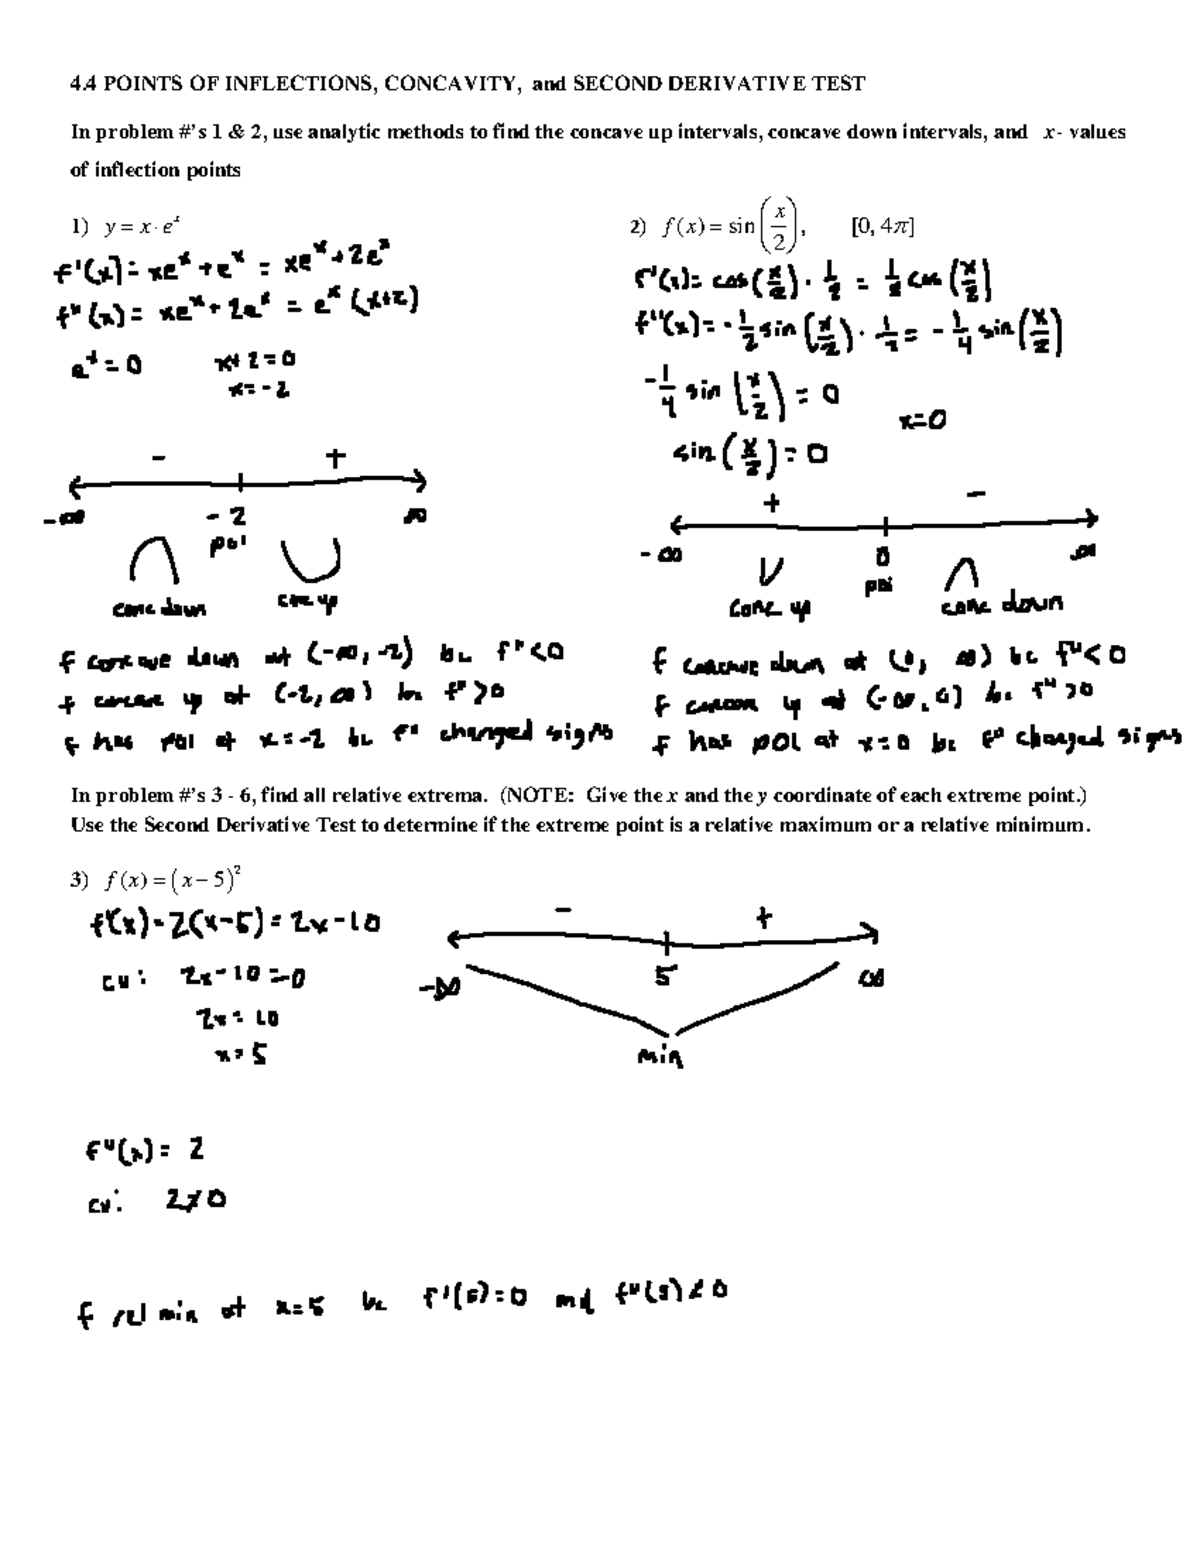 4.4 POINTS OF INFLECTIONS, CONCAVITY, and SECOND DERIVATIVE TEST
In problem #'s 1 & 2, use analytic methods to find the concave up intervals, concave down intervals, and x- values
of inflection points
1) y = x · eˣ
f'(x) = xeˣ + eˣ = xeˣ + 2eˣ
f"(x) = xeˣ + 2eˣ = eˣ (x+2)
eˣ = 0 x+2=0
x = -2
- +
-∞ -2 ∞
poi
conc down conc up
f concave down at (-∞, -2) bc f" < 0
f concave up at (-2, ∞) bc f" > 0
f has POI at x = -2 bc f" changed signs
2) f(x) = sin(x/2), [0, 4π]
f'(x) = cos(x/2) · 1/2 = 1/2 cos(x/2)
f"(x) = -1/2 sin(x/2) · 1/2 = -1/4 sin(x/2)
-1/4 sin(x/2) = 0
x=0
sin(x/2) = 0
+ -
-∞ 0 ∞
poi
conc up conc down
f concave down at (0, ∞) bc f" < 0
f concave up at (-∞, 0) bc f" > 0
f has POI at x = 0 bc f" changed signs
In problem #'s 3 - 6, find all relative extrema. (NOTE: Give the x and the y coordinate of each extreme point.)
Use the Second Derivative Test to determine if the extreme point is a relative maximum or a relative minimum.
3) f(x) = (x - 5)²
f'(x) = 2(x-5) = 2x-10
cv: 2x-10=0
2x = 10
x = 5
- +
-∞ 5 ∞
min
f"(x) = 2
cv: 2≠0
f rel min at x=5 bc f'(5)=0 and f"(5) ≠ 0